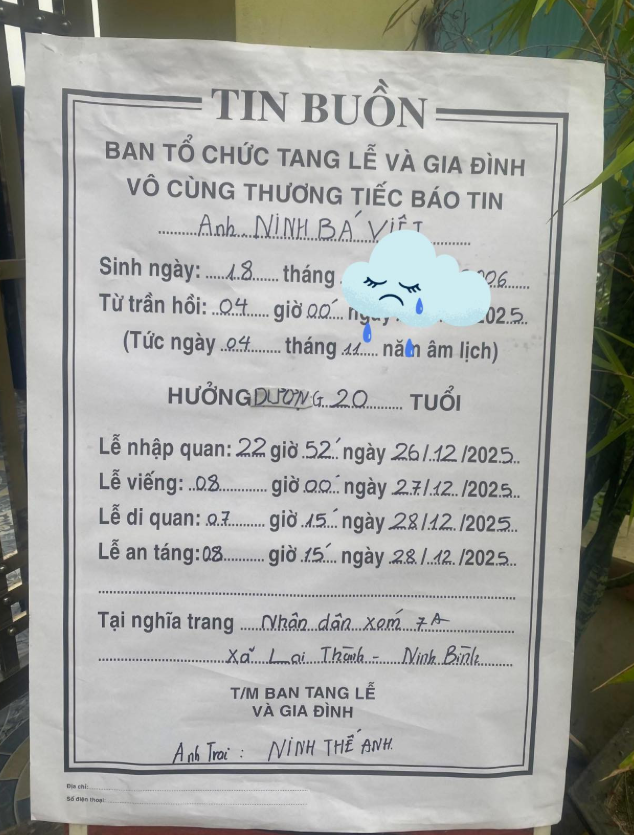 TIN BUỒN
BAN TỔ CHỨC TANG LỄ VÀ GIA ĐÌNH
VÔ CÙNG THƯƠNG TIẾC BÁO TIN
Anh. NINH BÁ VIỆT
Sinh ngày: 18 tháng 06
Từ trần hồi: 04 giờ 00' ngày 2025
(Tức ngày 04 tháng 11 năm âm lịch)
HƯỞNG DƯƠNG 20 TUỔI
Lễ nhập quan: 22 giờ 52' ngày 26/12/2025
Lễ viếng: 08 giờ 00' ngày 27/12/2025
Lễ di quan: 07 giờ 15' ngày 28/12/2025
Lễ an táng: 08 giờ 15' ngày 28/12/2025
Tại nghĩa trang Nhân dân xóm 7A
Xã Lai Thành - Ninh Bình
T/M BAN TANG LỄ
VÀ GIA ĐÌNH
Anh Trai: NINH THẾ ANH.
Địa chỉ:
Số điện thoại: